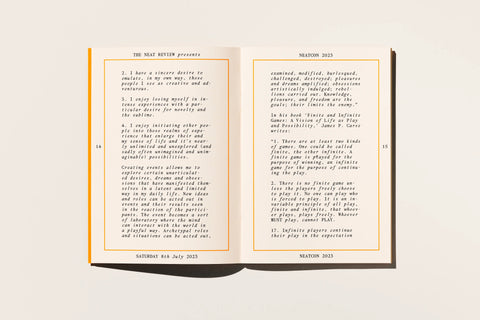 THE NEAT REVIEW presents
2. I have a sincere desire to
emulate, in my own way, those
people I see as creative and ad-
venturous.
3. I enjoy losing myself in in-
tense experiences with a par-
ticular desire for novelty and
the sublime.
4. I enjoy initiating other peo-
ple into these realms of expe-
rience that enlarge their and
my sense of life and it's near-
ly unlimited and unexplored (and
sadly often unimagined and unim-
aginable) possibilities.
Creating events allows me to
explore certain unarticulat-
ed desires, dreams and obses-
sions that have manifested them-
selves in a latent and limited
way in my daily life. New ideas
and roles can be acted out in
events and their results seen
in the reaction of the partici-
pants. The event becomes a sort
of laboratory where the mind
can interact with the world in
a playful way. Archetypal roles
and situations can be acted out,
14
SATURDAY 8th July 2023
NEATCON 2023
examined, modified, burlesqued,
challenged, destroyed; pleasures
and dreams amplified; obsessions
artistically indulged; rebel-
lions carried out. Knowledge,
pleasure, and freedom are the
goals; their limits the enemy."
In his book 'Finite and Infinite
Games: A Vision of Life as Play
and Possibility,' James P. Carse
writes:
"1. There are at least two kinds
of games. One could be called
finite, the other infinite. A
finite game is played for the
purpose of winning, an infinite
game for the purpose of continu-
ing the play.
2. There is no finite game un-
less the players freely choose
to play it. No one can play who
is forced to play. It is an in-
variable principle of all play,
finite and infinite, that whoev-
er plays, plays freely. Whoever
MUST play, cannot PLAY.
17. Infinite players continue
their play in the expectation
15
NEATCON 2023